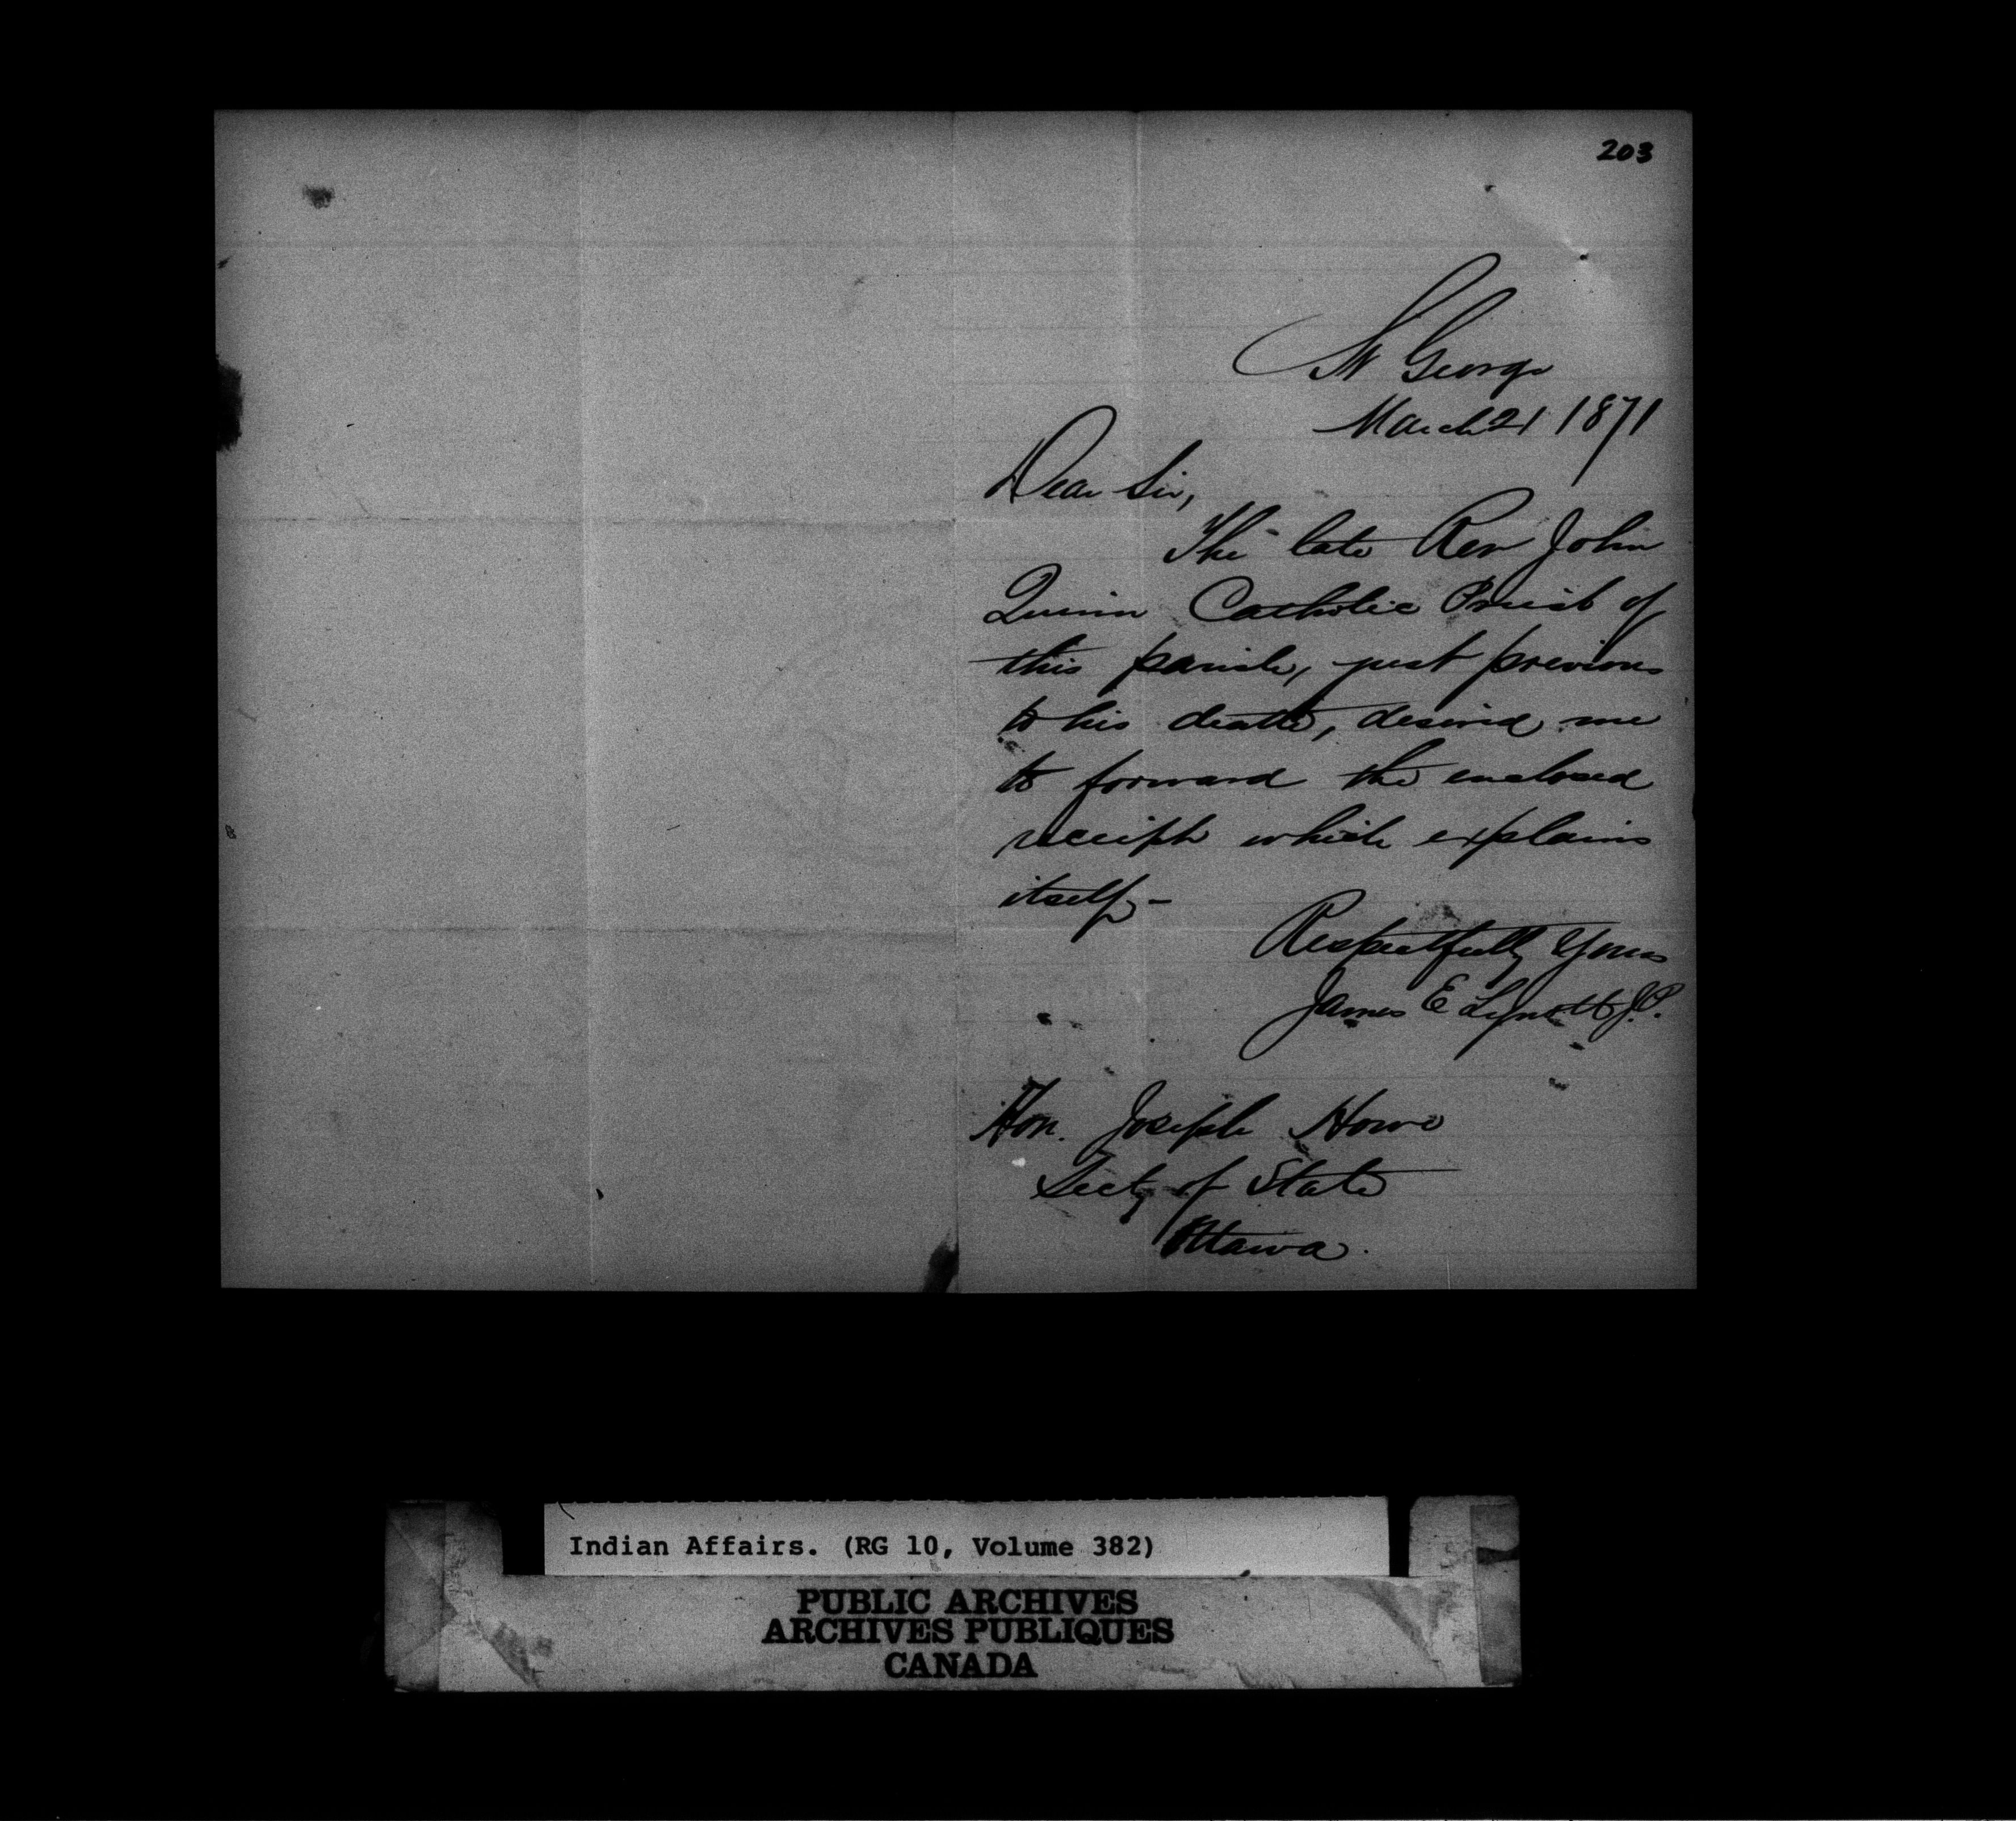 203
St George
March 21 1871
Dear Sir,
The late Rev John
Quinn Catholic Priest of
this parish, just previous
to his death, desired me
to forward the enclosed
receipt which explains
itself –
Respectfully Yours
James E Lynott J.P.
Hon. Joseph Howe
Secty of State
Ottawa.
Indian Affairs. (RG 10, Volume 382)
PUBLIC ARCHIVES
ARCHIVES PUBLIQUES
CANADA